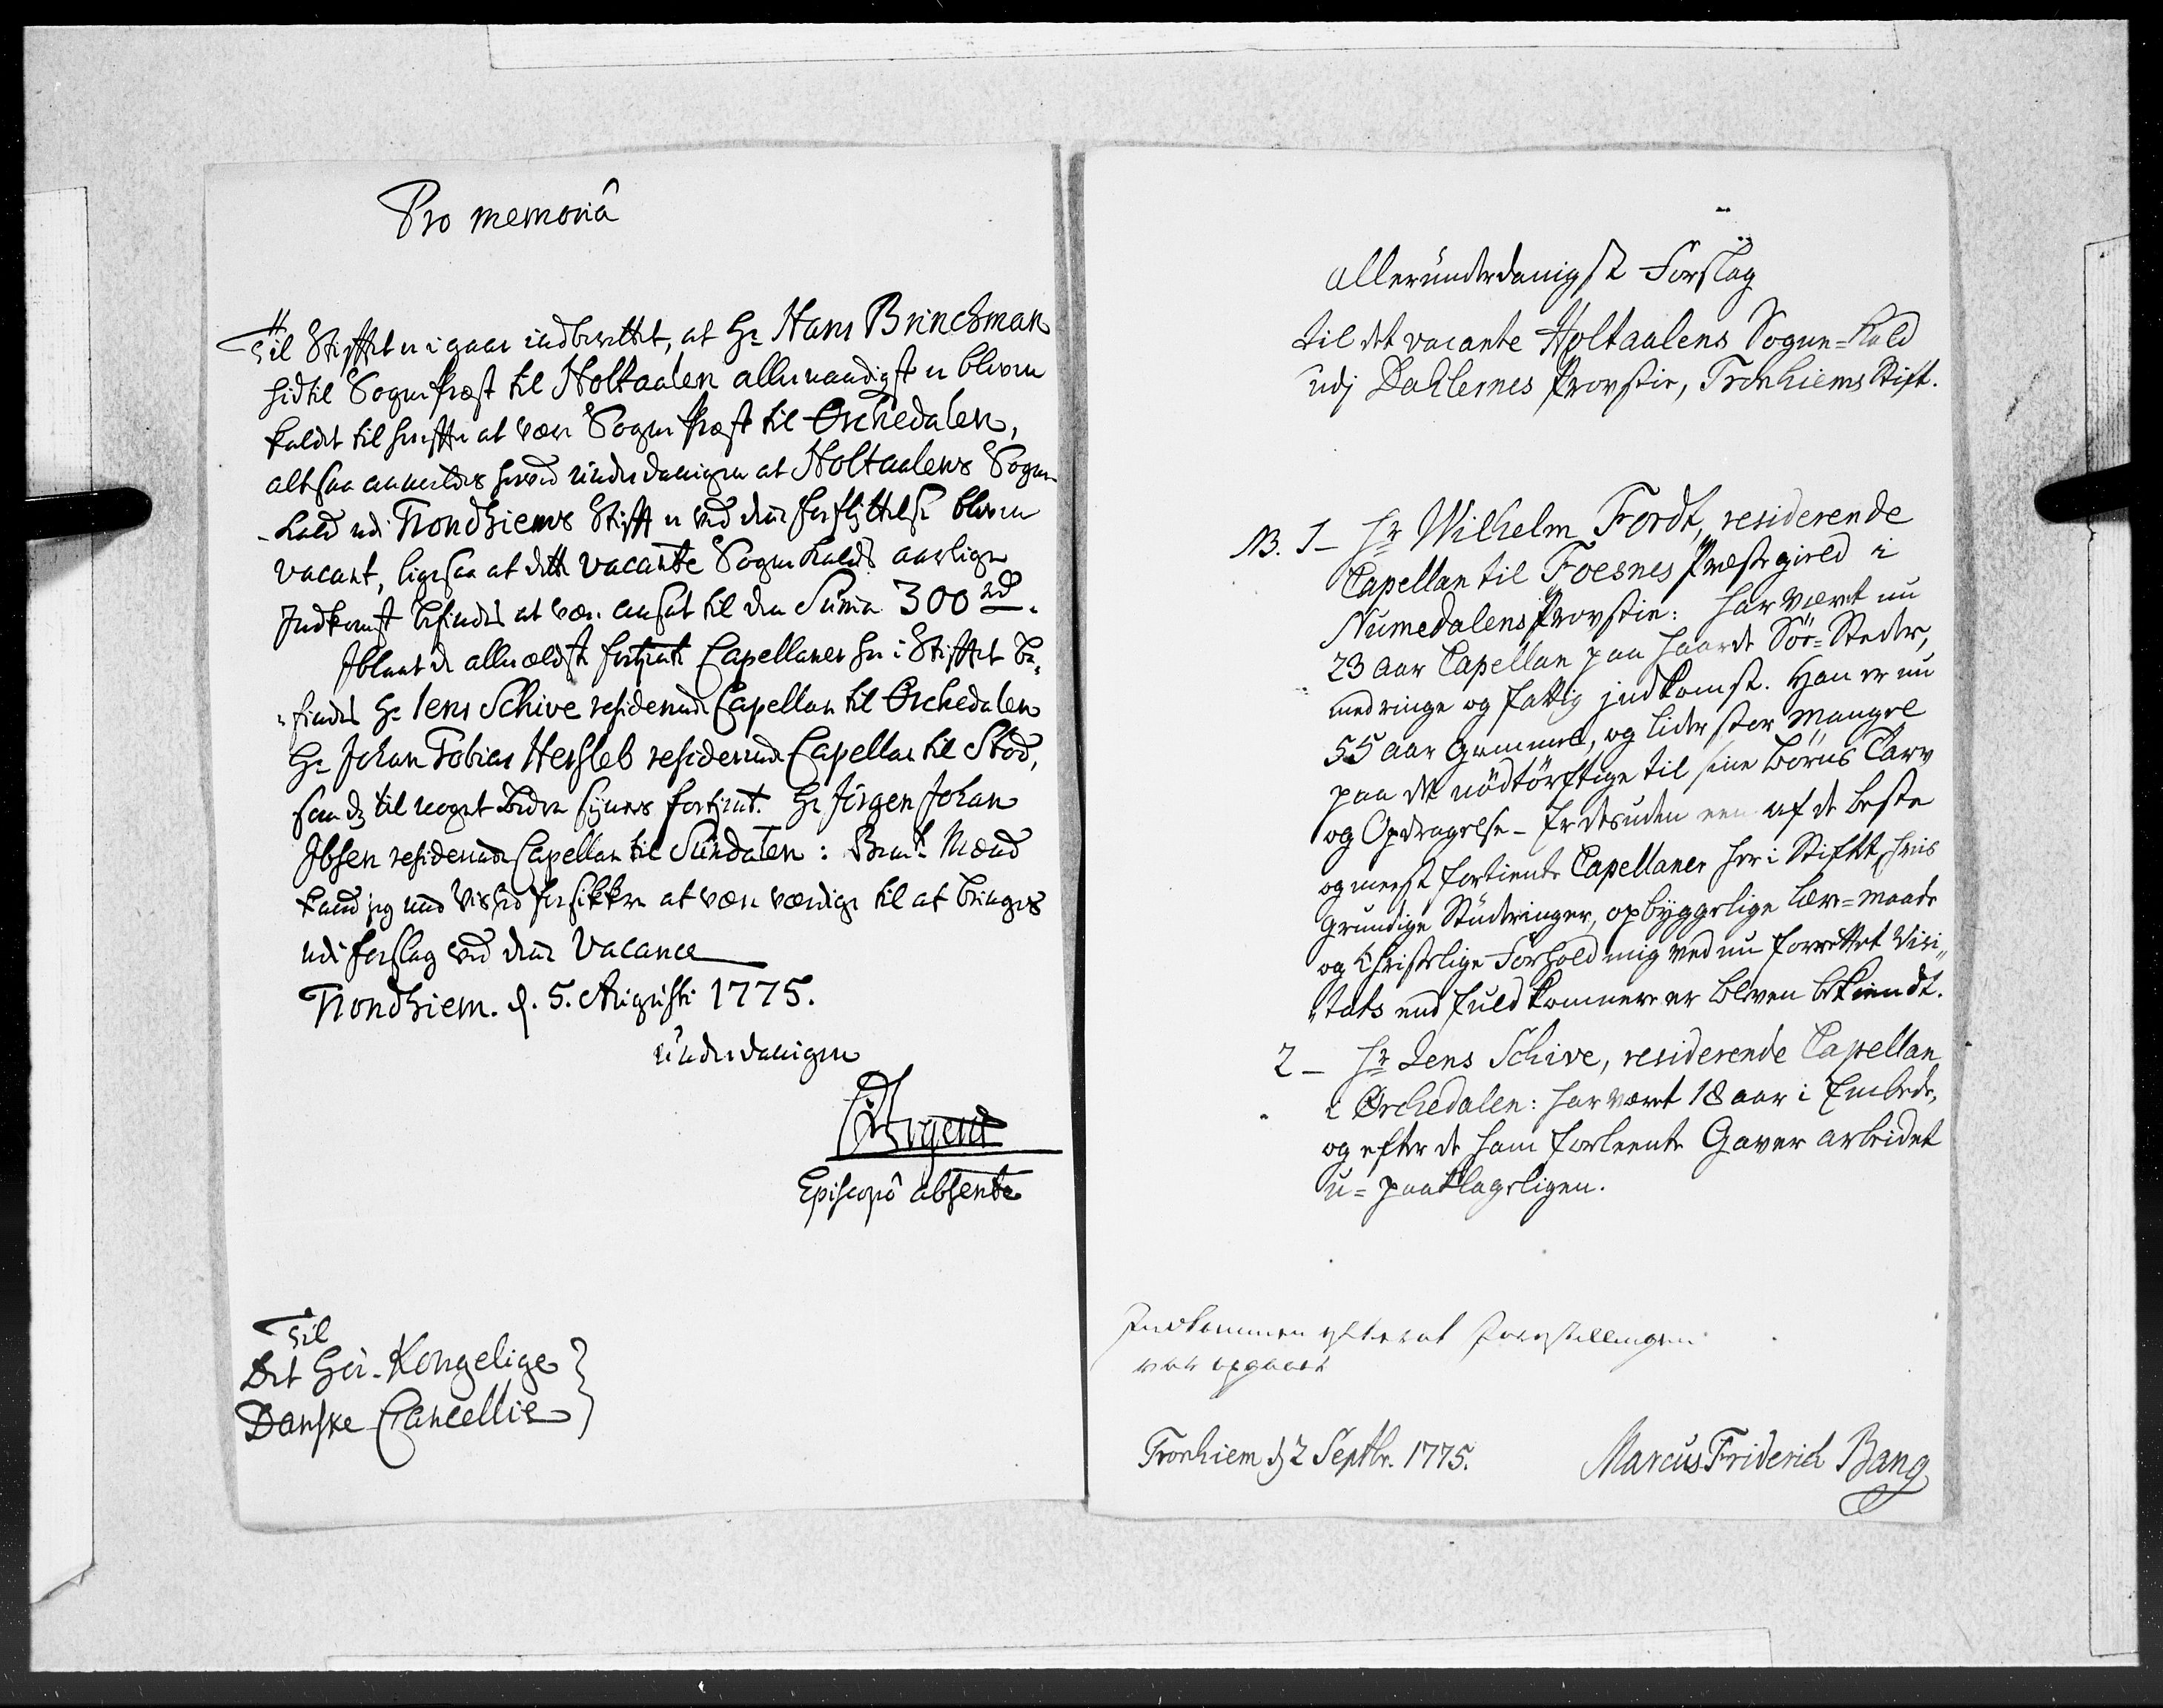 Pro memoriâ
Til Stifftet er i gaar indberettet, at Hr Hans Brinchman
hidtil Sogne Præst til Holtaalen allernaadigst er bleven
kaldet til herefter at være Sogne Præst til Orchedalen,
altsaa anmeldes herved underdanigen at Holtaalens Sogne-
-Kald udi Trondhiems Stifft er ved denne forflyttelse bleven
vacant, ligesaa at dette vacante Sogne Kalds aarlige
Indkomst befindes at være ansat til den Summa 300 rd.
Iblant de aller ældste fortiente Capellaner her i Stifftet be-
-findes Hr Iens Schive residerende Capellan til Orchedalen
Hr Johan Tobias Hersleb residerende Capellan til Stod,
som og til noget bedre synes fortient. Hr Jørgen Johan
Ibsen residerende Capellan til Sundalen: Mænd
kand jeg med Vished forsikkre at være værdige til at bringes
udi forslag ved denne Vacance
Trondhiem. d. 5. Augusti 1775.
underdanigen
Episcopô absente
Til
Det Høi-Kongelige
Danske Cancellie
Allerunderdanigst Forslag
til det vacante Holtaalens Sogne-Kald
udj Dahlernes Provstie, Tronhiems Stift.
NB. 1 - Hr Wilhelm Fordt, residerende
Capellan til Foesnes Præstegield i
Numedalens Provstie: har været nu
23 aar Capellan paa haarde Söe-Steder,
med ringe og fattig indkomst. Han er nu
55 aar gammel, og lider stor Mangel
paa det nödtörftige til sine Börns Tarv
og Opdragelse - Er desuden een af de beste
og meest fortiente Capellaner her i Stiftet, hvis
grundige Studeringer, opbyggelige Lære-maade
og Christelige Forhold mig ved nu forrettet Visi-
-tats end fuldkomnere er bleven bekiendt.
2 - Hr Jens Schive, residerende Capellan
i Ørchedalen: har været 18 aar i Embede,
og efter de ham forleente Gaver arbeidet
u-paaklageligen.
Indkommen efter at Forestillingen
var opgaaet
Tronhiem d 2 Septbr. 1775. Marcus Friderich Bang